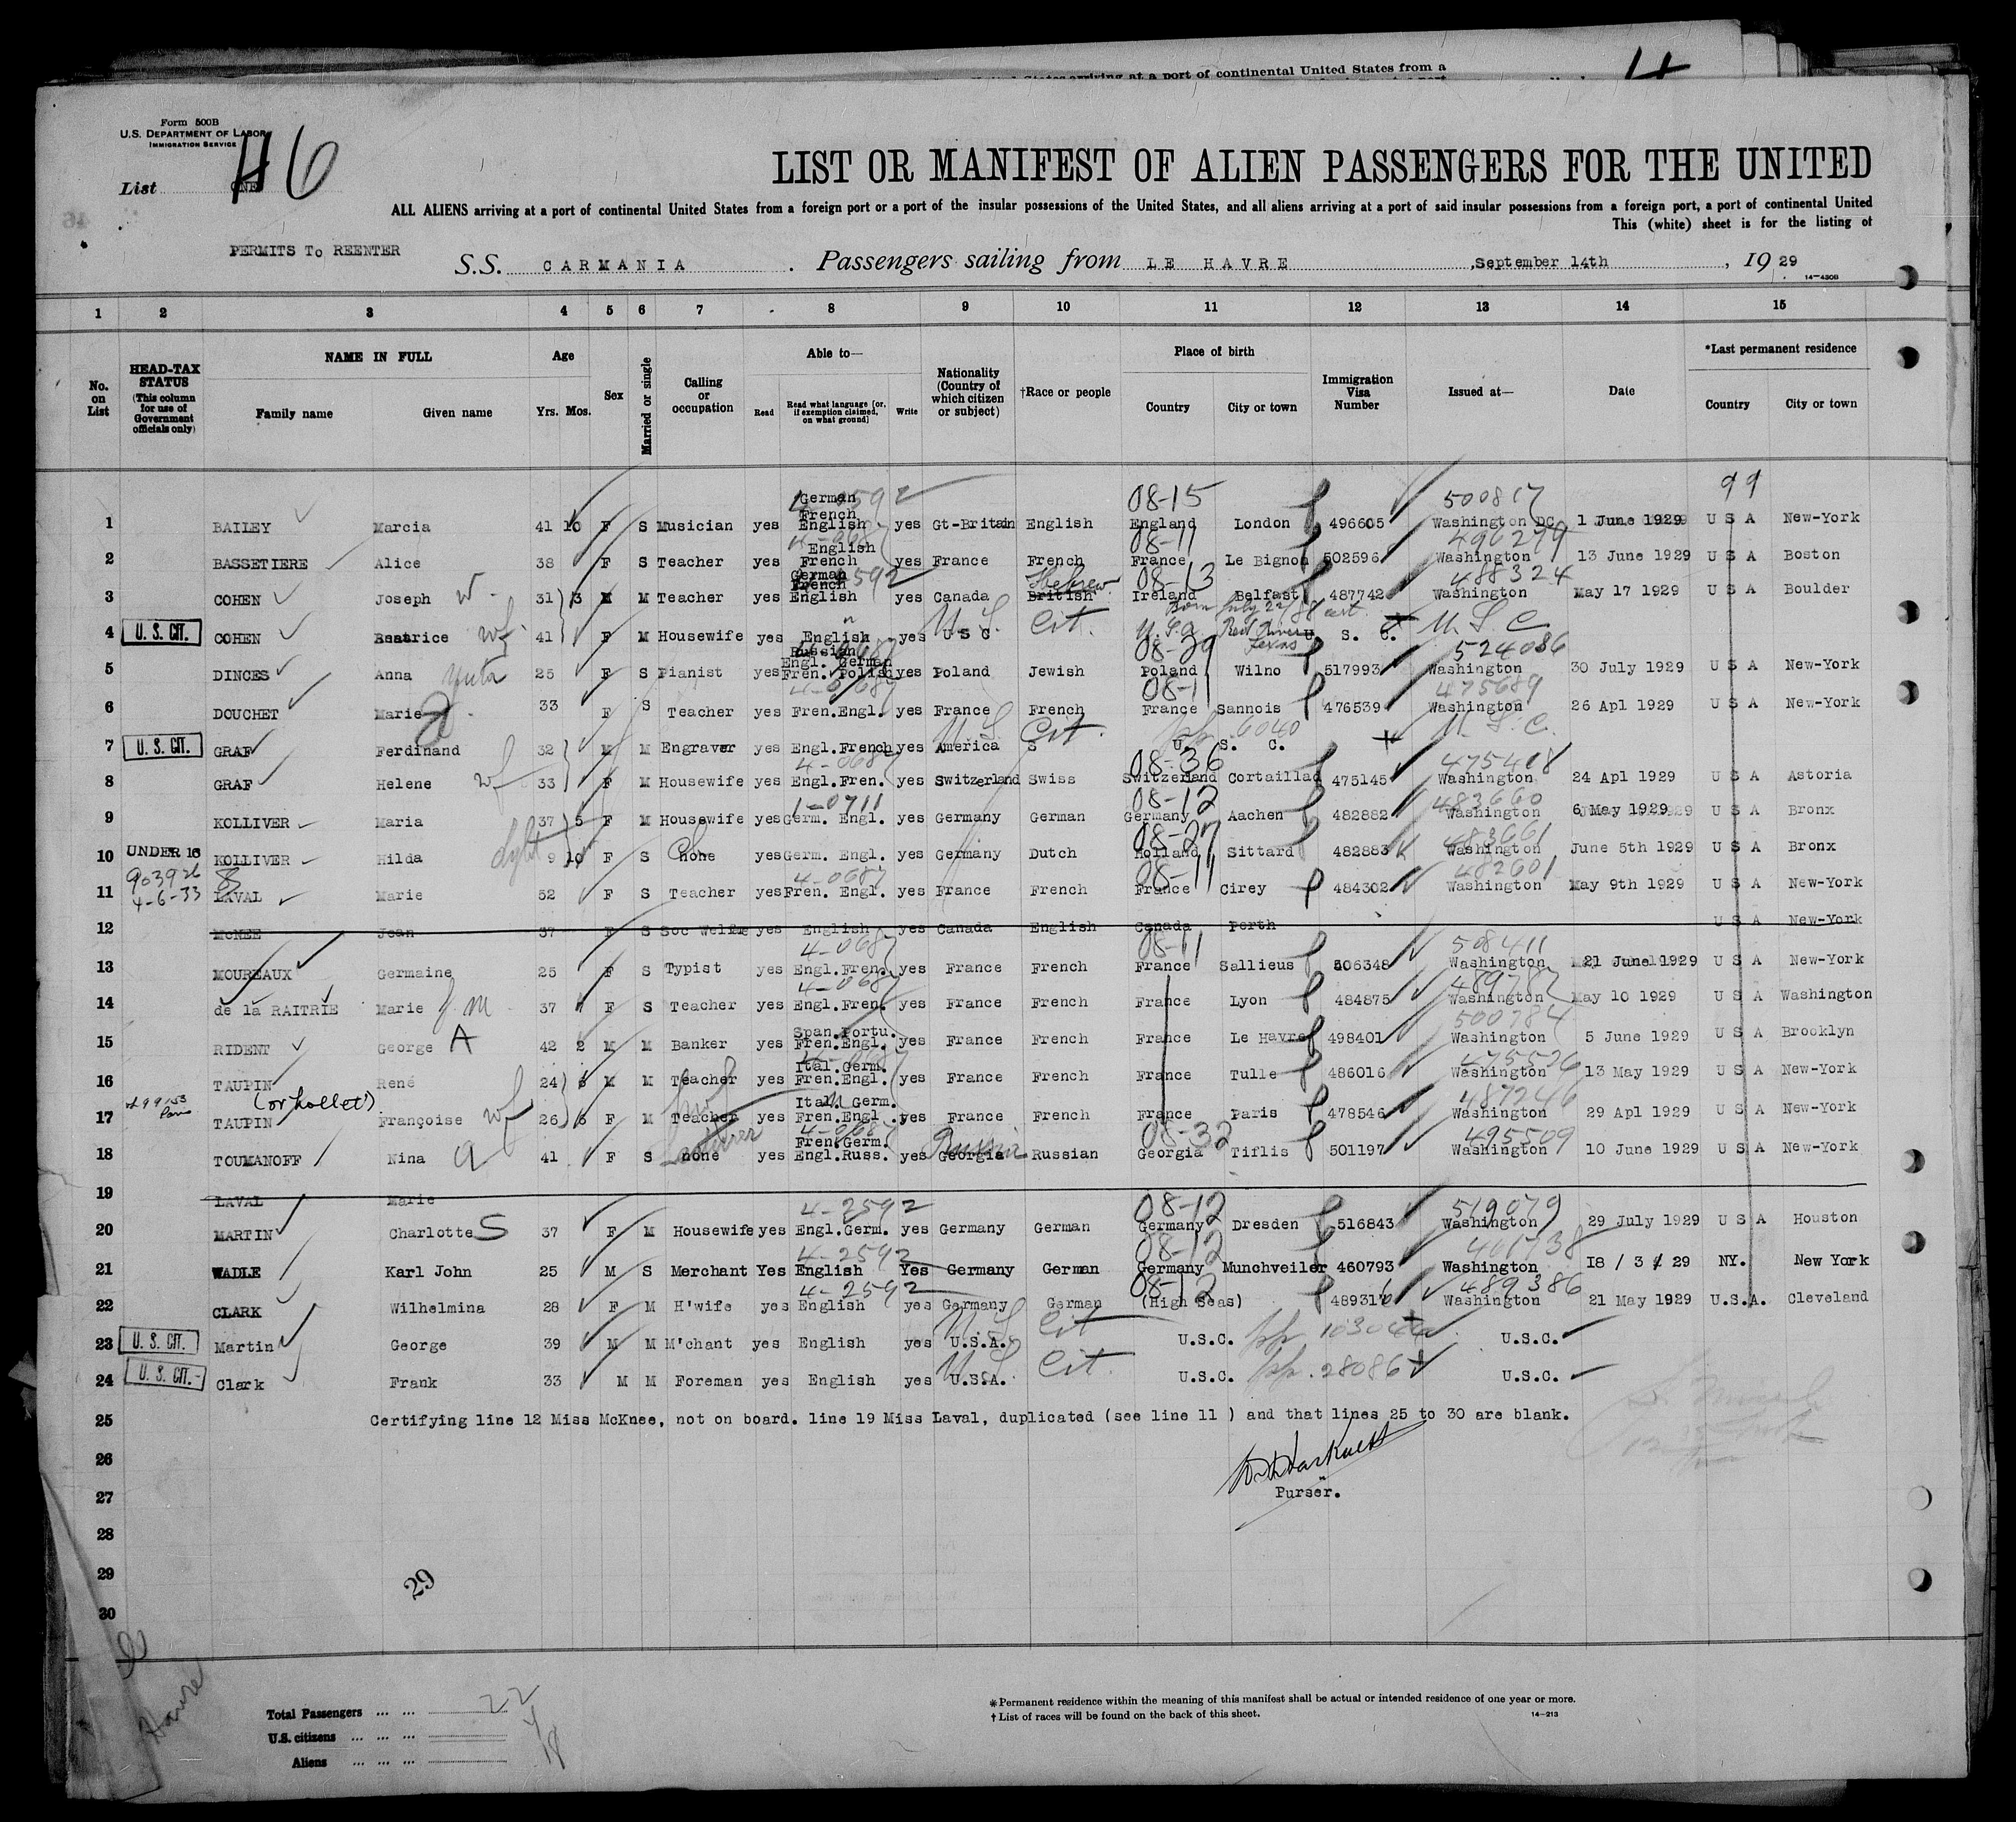 States arriving at a port of continental United States from a
4
Form 500B
U.S. DEPARTMENT OF LABOR
IMMIGRATION SERVICE
List ONE 46
LIST OR MANIFEST OF ALIEN PASSENGERS FOR THE UNITED
ALL ALIENS arriving at a port of continental United States from a foreign port or a port of the insular possessions of the United States, and all aliens arriving at a port of said insular possessions from a foreign port, a port of continental United
This (white) sheet is for the listing of
PERMITS To REENTER
S.S. CARMANIA. Passengers sailing from LE HAVRE, September 14th, 19 29
14-430B
1 2 3 4 5 6 7 8 9 10 11 12 13 14 15
No. on List
HEAD-TAX STATUS (This column for use of Government officials only)
NAME IN FULL
Family name Given name
Age
Yrs. Mos.
Sex
Married or single
Calling or occupation
Able to—
Read Read what language [or, if exemption claimed, on what ground] Write
Nationality (Country of which citizen or subject)
†Race or people
Place of birth
Country City or town
Immigration Visa Number
Issued at—
Date
*Last permanent residence
Country City or town
German 08-15 500817 99
French
1 BAILEY Marcia 41 10 F S Musician yes English yes Gt-Britain English England London 496605 Washington DC 1 June 1929 U S A New-York
English 08-11 496279
2 BASSETIERE Alice 38 F S Teacher yes French yes France French France Le Bignon 502596 Washington 13 June 1929 U S A Boston
German French Hebrew 08-13 488324
3 COHEN Joseph 31 3 M M Teacher yes English yes Canada British Ireland Belfast 487742 Washington May 17 1929 U S A Boulder
Born July 22/88
4 U. S. CIT. COHEN Beatrice wf 41 F M Housewife yes English yes U S C Cit. Red River Texas U. S. C. U S C
Russian 08-29 524086
Engl. German
5 DINCES Anna Yuta 25 F S Pianist yes Fren. Polish yes Poland Jewish Poland Wilno 517993 Washington 30 July 1929 U S A New-York
4-0687 08-11 475689
6 DOUCHET Marie 33 F S Teacher yes Fren.Engl. yes France French France Sannois 476539 Washington 26 Apl 1929 U S A New-York
7 U. S. CIT. GRAF Ferdinand 32 M M Engraver yes Engl.French yes America S Cit. U. S. C. U. S. C.
4-0687 08-36 475418
8 GRAF Helene wf 33 F M Housewife yes Engl.Fren. yes Switzerland Swiss Switzerland Cortaillad 475145 Washington 24 Apl 1929 U S A Astoria
1-0711 08-12 483660
9 KOLLIVER Maria 37 5 F M Housewife yes Germ. Engl. yes Germany German Germany Aachen 482882 Washington 6 May 1929 U S A Bronx
08-27 483661
10 UNDER 16 KOLLIVER Hilda 9 10 F S none yes Germ. Engl. yes Germany Dutch Holland Sittard 482883 Washington June 5th 1929 U S A Bronx
903926 4-0687 08-11 482601
11 4-6-33 LAVAL Marie 52 F S Teacher yes Fren. Engl. yes France French France Cirey 484302 Washington May 9th 1929 U S A New-York
12 McNEE Jean 37 F S Soc Welfre yes English yes Canada English Canada Perth U S A New-York
4-0687 08-11 508411
13 MOUREAUX Germaine 25 F S Typist yes Engl.Fren. yes France French France Sallieus 506348 Washington 21 June 1929 U S A New-York
4-0687 489787
14 de la RAITRIE Marie J. M 37 F S Teacher yes Engl.Fren. yes France French France Lyon 484875 Washington May 10 1929 U S A Washington
Span.Portu. 500784
15 RIDENT George A 42 2 M M Banker yes Fren.Engl. yes France French France Le Havre 498401 Washington 5 June 1929 U S A Brooklyn
Ital.Germ.
16 TAUPIN René 24 6 M M Teacher yes Fren.Engl. yes France French France Tulle 486016 Washington 13 May 1929 U S A New-York
Ital. Germ. 487246
17 TAUPIN Françoise wf 26 6 F M Teacher yes Fren.Engl. yes France French France Paris 478546 Washington 29 Apl 1929 U S A New-York
4-0687 Fren.Germ. Russia 08-32 495509
18 TOUMANOFF Nina 41 F S none yes Engl.Russ. yes Georgia Russian Georgia Tiflis 501197 Washington 10 June 1929 U S A New-York
19 LAVAL Marie
4-2592 08-12 519079
20 MARTIN Charlotte S 37 F M Housewife yes Engl.Germ. yes Germany German Germany Dresden 516843 Washington 29 July 1929 U S A Houston
4-2592 08-12 461738
21 WADLE Karl John 25 M S Merchant Yes English Yes Germany German Germany Munchveiler 460793 Washington I8 / 3 / 29 NY. New York
4-2592 08-12 489386
22 CLARK Wilhelmina 28 F M H'wife yes English yes Germany German (High Seas) 489316 Washington 21 May 1929 U.S.A. Cleveland
23 U. S. CIT. Martin George 39 M M M'chant yes English yes U.S.A. Cit U.S.C. U.S.C.
24 U. S. CIT. Clark Frank 33 M M Foreman yes English yes U.S.A. Cit. U.S.C. pp. 28086 U.S.C.
25 Certifying line 12 Miss McKnee, not on board. line 19 Miss Laval, duplicated (see line 11 ) and that lines 25 to 30 are blank.
26
Purser.
27
28
29
29
30
Havre
Total Passengers ... ... 22
U.S. citizens ... ... ... 4
Aliens ... ... ... 18
*Permanent residence within the meaning of this manifest shall be actual or intended residence of one year or more.
† List of races will be found on the back of this sheet.
14-213